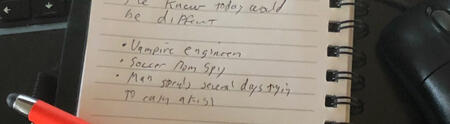 He knew today would
be different
• Vampire engineer
• Soccer Mom Spy
• Man spends several days trying
To catch a fish